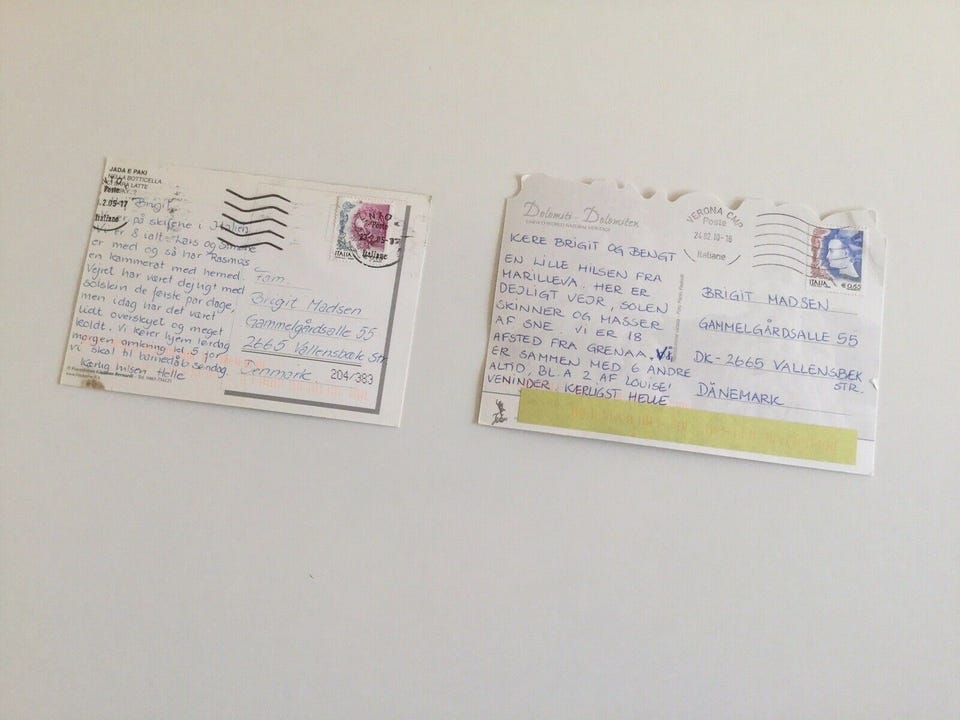 JADA E PAKI
NELLA BOTTICELLA
Poste
.2.05-17
Italiane
Brigit
på skiferie i Italien
Vi er 8 ialt - Lars og Simone
er med og så har Rasmus
en kammerat med herned.
Vejret har været dejligt med
solskin de første par dage,
men idag har det været
lidt overskyet og meget
koldt. Vi kører hjem lørdag
morgen omkring kl. 5 for
vi skal til barnedåb søndag.
Kærlig hilsen Helle
ITALIA
Poste
Italiane
Fam.
Brigit Madsen
Gammelgårdsalle 55
2665 Vallensbæk Str.
Denmark
204/383
Dolomiti - Dolomiten
VERONA CMP
Poste
24.02.10-16
Italiane
ITALIA
€0,65
KÆRE BRIGIT OG BENGT
EN LILLE HILSEN FRA
MARILLEVA. HER ER
DEJLIGT VEJR, SOLEN
SKINNER OG MASSER
AF SNE. VI ER 18
AFSTED FRA GRENAA. Vi
ER SAMMEN MED 6 ANDRE
ALTID, BL.A 2 AF LOUISE'
VENINDER. KERLIGST HELLE
BRIGIT MADSEN
GAMMELGÅRDSALLE 55
DK-2665 VALLENSBEK
STR.
DÄNEMARK